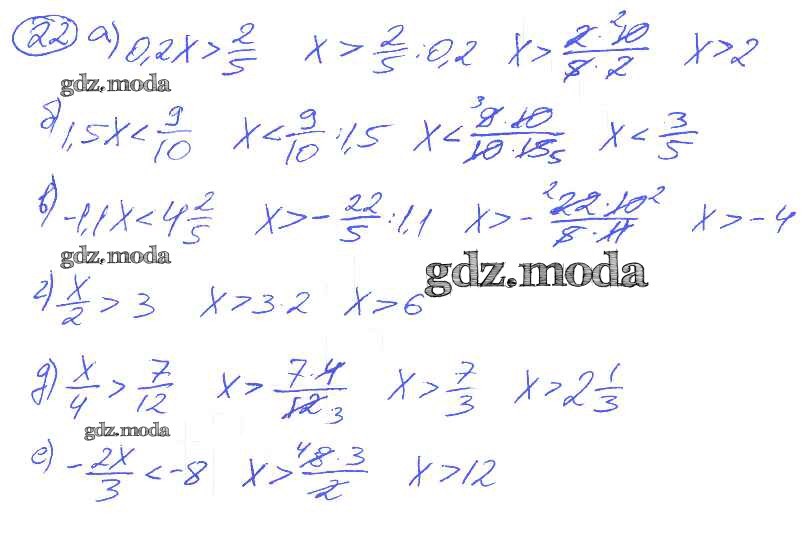 22 а) 0,2x > 2/5 x > 2/5 : 0,2 x > 2·10/5·2 2 x > 2
gdz.moda
б) 1,5x < 9/10 x < 9/10 : 1,5 x < 3 9·10/10·15 5 x < 3/5
в) -1,1x < 4 2/5 x > - 22/5 : 1,1 x > - 2 22·10 2/5·11 x > -4
gdz.moda
gdz.moda
г) x/2 > 3 x > 3·2 x > 6
д) x/4 > 7/12 x > 7·4/12 3 x > 7/3 x > 2 1/3
gdz.moda
е) - 2x/3 < -8 x > 4 8·3/2 x > 12